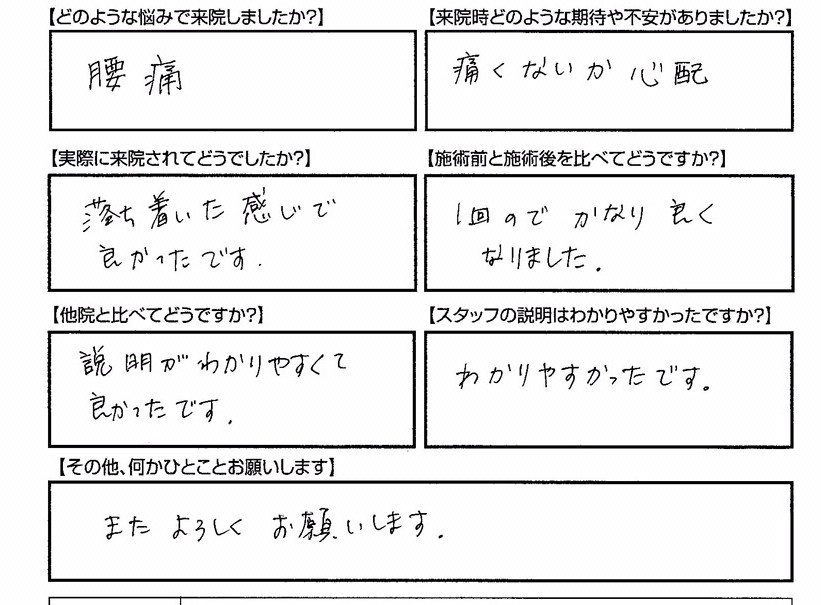 【どのような悩みで来院しましたか?】
腰痛
【来院時どのような期待や不安がありましたか?】
痛くないか心配
【実際に来院されてどうでしたか?】
落ち着いた感じで
良かったです.
【施術前と施術後を比べてどうですか?】
1回のでかなり良く
なりました。
【他院と比べてどうですか?】
説明がわかりやすくて
良かったです。
【スタッフの説明はわかりやすかったですか?】
わかりやすかったです。
【その他、何かひとことお願いします】
またよろしくお願いします.